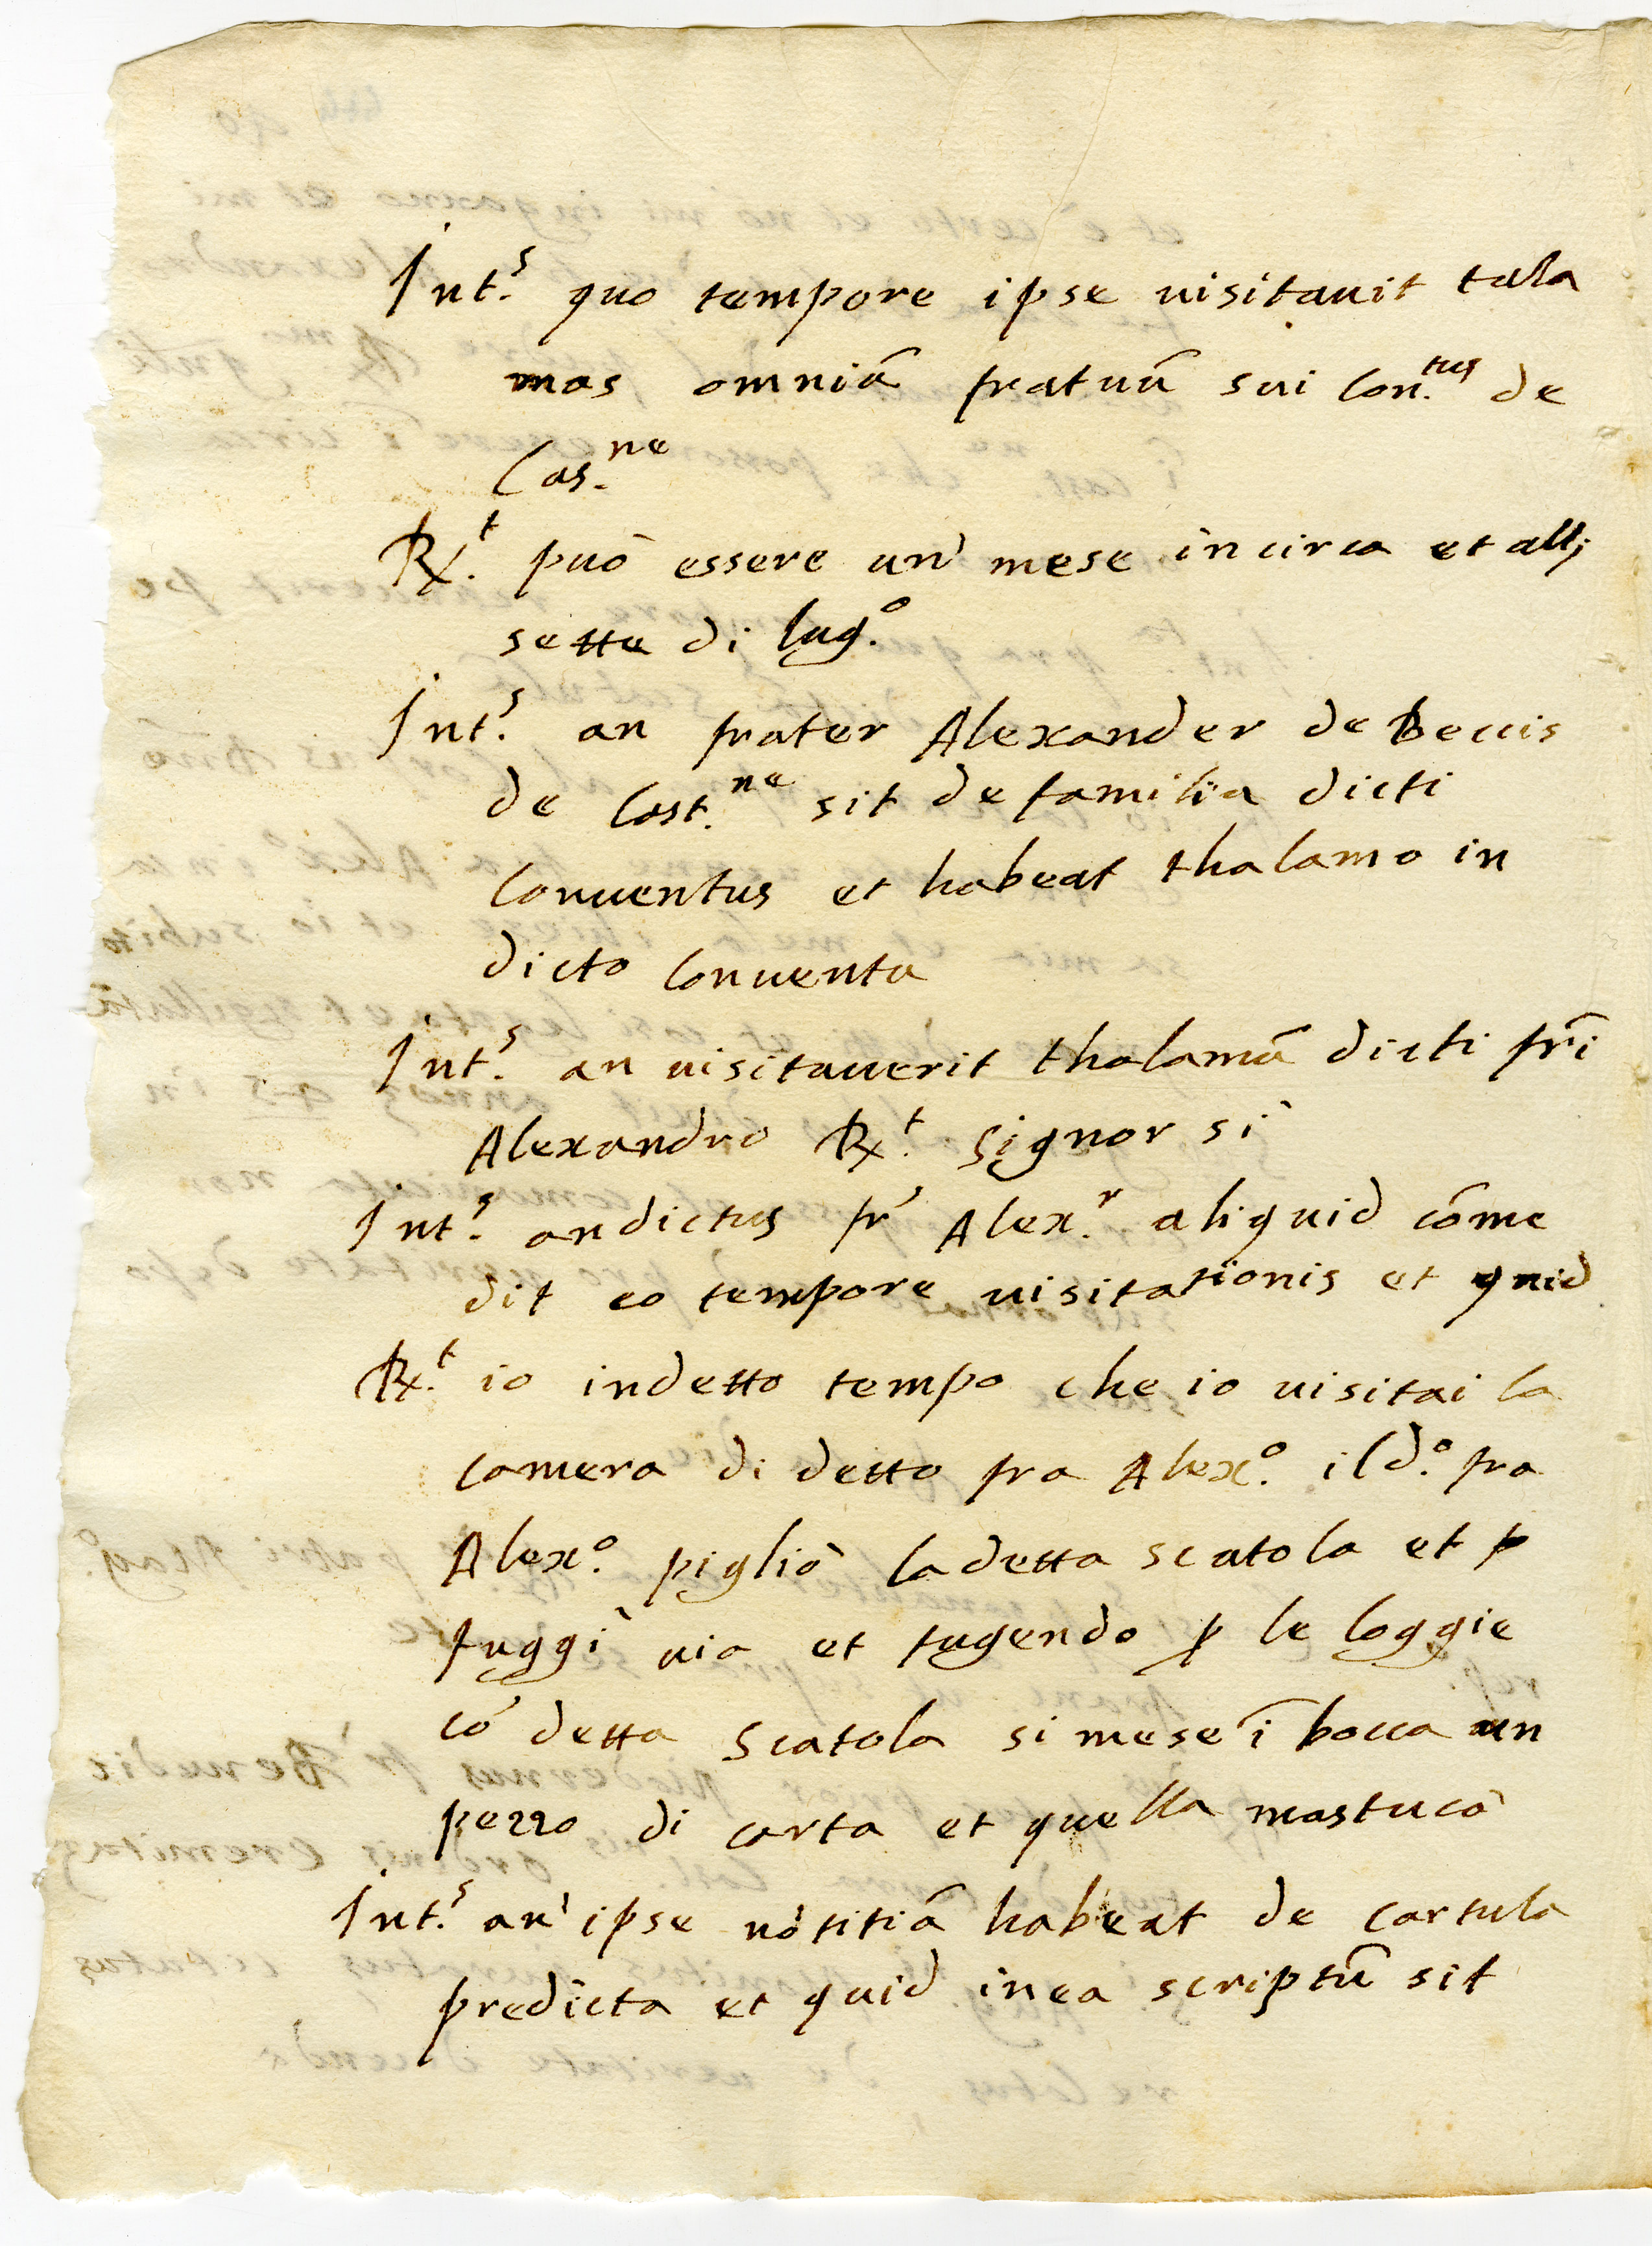 Int.s quo tempore ipse uisitauit tala
mos omniũ fratuũ sui Con.tus de
Cas.ne
Rx.t può essere un mese incirca et allj
sette di lug.o
Int.s an frater Alexander de Beccis
de Cast.ne sit de familia dicti
Conuentus et habeat thalamo in
dicto Conuentu
Int.s an uisitauerit thalamũ dicti fr̃i
Alexandro Rx.t Signor sì
Int.s an dictus fr̃ Alex.r aliquid cõme
dit eo tempore uisitationis et quid
Rx.t io in detto tempo che io uisitai la
camera di detto fra Alex.o il d.o fra
Alex.o pigliò la detta scatola et p
fuggì uia et fugendo ꝑ le loggie
cõ detta scatola si mese ĩ bocca un
pezzo di carta et quella mastucò
Int.s an ipse notitiã habeat de cartula
predicta et quid in ea scriptũ sit